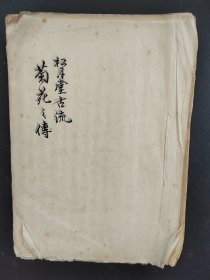 松月堂古流
菊花之傳